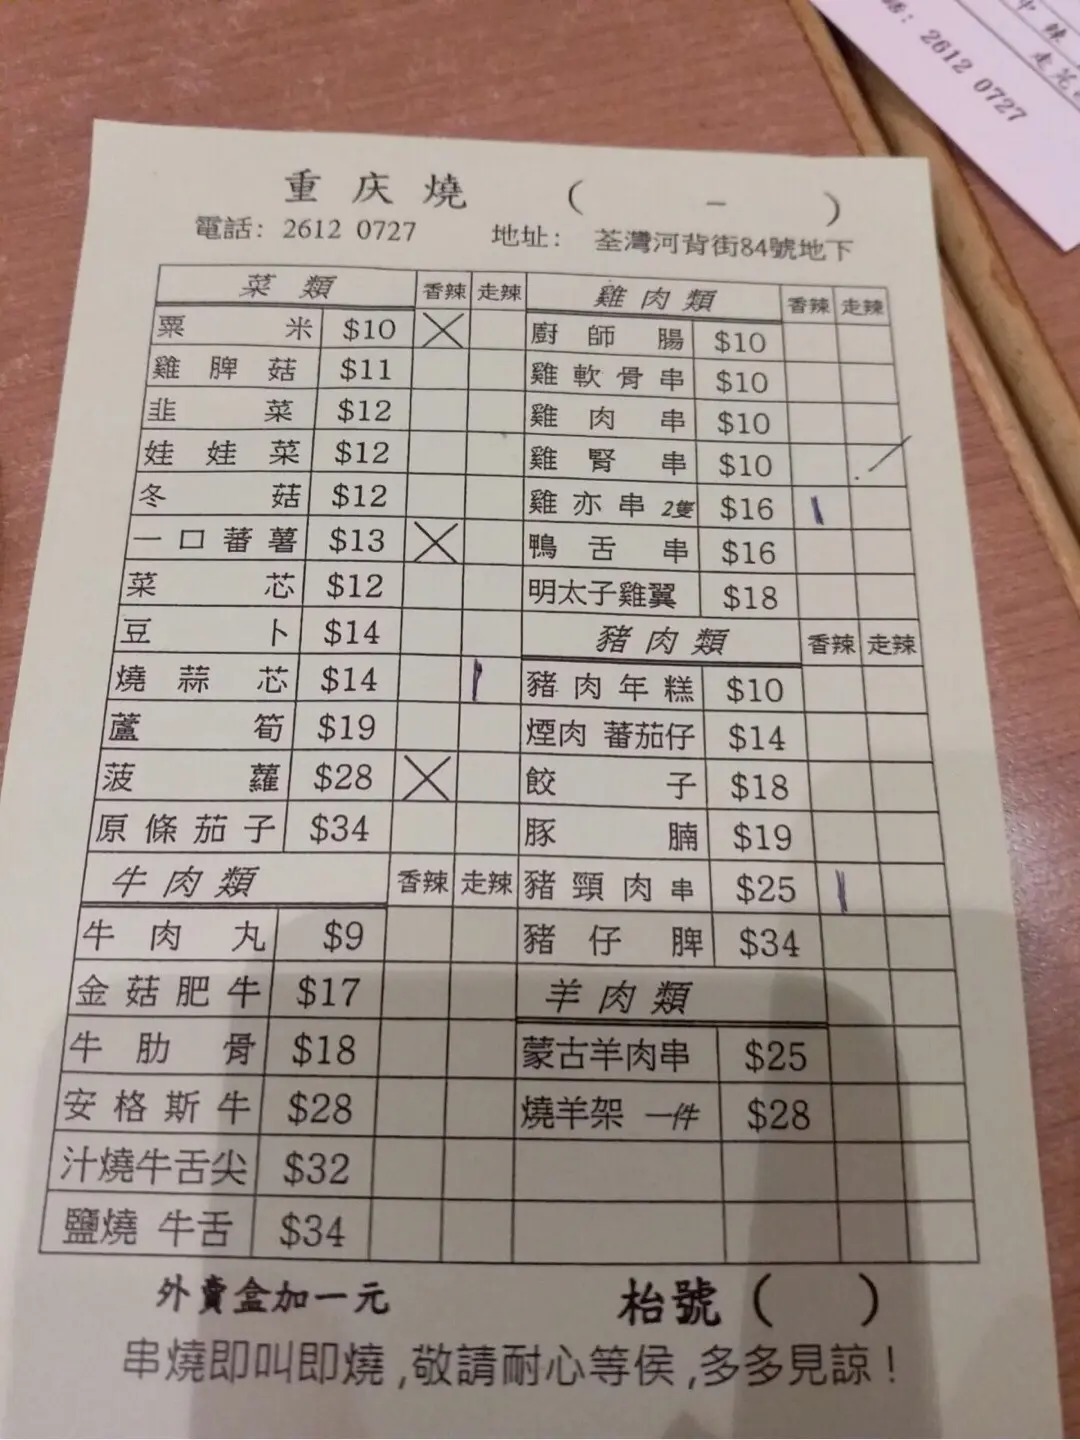 中辣
走
話: 2612 0727
重庆燒 ( – )
電話: 2612 0727 地址: 荃灣河背街84號地下
菜類 香辣 走辣
粟米 $10
雞脾菇 $11
韭菜 $12
娃娃菜 $12
冬菇 $12
一口蕃薯 $13
菜芯 $12
豆卜 $14
燒蒜芯 $14
蘆筍 $19
菠蘿 $28
原條茄子 $34
牛肉類 香辣 走辣
牛肉丸 $9
金菇肥牛 $17
牛肋骨 $18
安格斯牛 $28
汁燒牛舌尖 $32
鹽燒 牛舌 $34
雞肉類 香辣 走辣
廚師腸 $10
雞軟骨串 $10
雞肉串 $10
雞腎串 $10
雞亦串 2隻 $16
鴨舌串 $16
明太子雞翼 $18
豬肉類 香辣 走辣
豬肉年糕 $10
煙肉 蕃茄仔 $14
餃子 $18
豚腩 $19
豬頸肉串 $25
豬仔脾 $34
羊肉類
蒙古羊肉串 $25
燒羊架 一件 $28
外賣盒加一元
枱號 ( )
串燒即叫即燒,敬請耐心等侯,多多見諒!